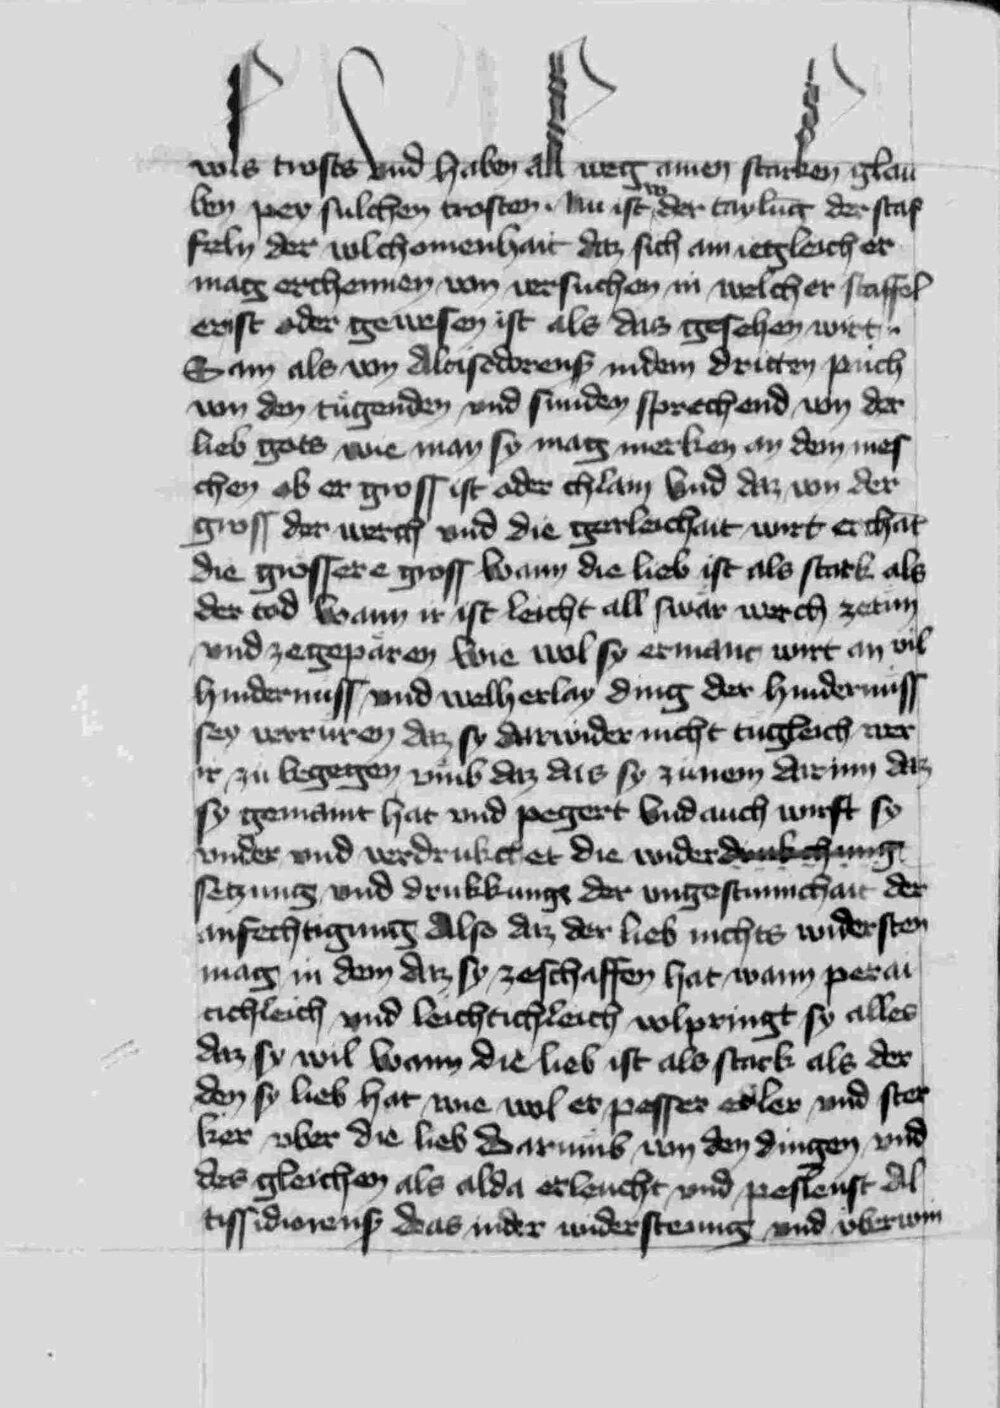 vols trosts vnd haben all weg ainen starken glau
ben pey sulchen trosten · Nu ist der taylu͂g der staf
feln der volchomenhait daz sich ain ietgleicher
mag erchennen von versuchen in welcher staffel
er ist oder gewesen ist als daz gesehen wirt ·
Sam als von Altisedorens͂ in dem dritten puch
von den tugenden vnd sunden sprechend von der
lieb gots wie man sy mag merken an dem mes͂
chen ob er gross ist oder chlain Vnd daz von der
gross der werch vnd die gerleichait wirt erchāt
die grössere gross Wann die lieb ist als stark als
der tod Wann ir ist leicht all swär werch zetün
vnd zegepären Wie wol sy ermant wirt an vil
hindernüss vnd welherlay ding der hindernüss
sey verrüren daz sy darwider nicht tugleich wer
ir zu begegen vmb daz das sy zunem darinn daz
sy gemaint hat vnd pegert Vnd auch wirft sy
vnder vnd verdrukchet die widerdrukchung
setzung vnd drukkunge der vngestümchait der
anfechtigung Also daz der lieb nichts widersten
mag in dem daz sy zeschaffen hat wann perai
tichleich vnd leichtichleich volpringt sy alles
daz sy wil Wann die lieb ist als stark als der
den sy lieb hat wie wol er pesser edler vnd ster
ker vber die lieb Darumb von den dingen vnd
des gleichen als alda erleucht vnd pesleust Al
tissidiorens͂ deas in der widersteung vnd vberwin